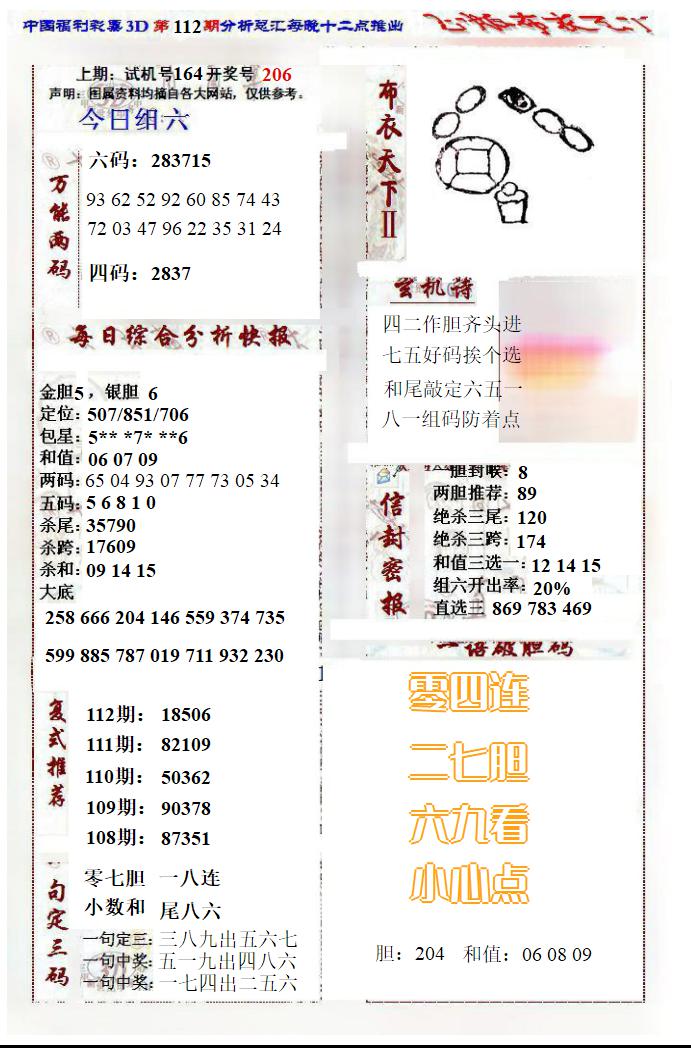 中国福利彩票3D 第112期分析总汇每晚十二点推出
上期：试机号164开奖号 206
声明：图属资料均摘自各大网站，仅供参考。
今日组六
万能两码
六码：283715
93 62 52 92 60 85 74 43
72 03 47 96 22 35 31 24
四码：2837
每日综合分析快报
金胆5，银胆 6
定位：507/851/706
包星：5** *7* **6
和值：06 07 09
两码：65 04 93 07 77 73 05 34
五码：5 6 8 1 0
杀尾：35790
杀跨：17609
杀和：09 14 15
大底
258 666 204 146 559 374 735
599 885 787 019 711 932 230
复式推荐
112期： 18506
111期： 82109
110期： 50362
109期： 90378
108期： 87351
一句定三码
零七胆 一八连
小数和 尾八六
一句定三：三八九出五六七
一句中奖：五一九出四八六
一句中奖：一七四出二五六
布衣天下II
玄机诗
四二作胆齐头进
七五好码挨个选
和尾敲定六五一
八一组码防着点
信封密报
一胆封喉：8
两胆推荐：89
绝杀三尾：120
绝杀三跨：174
和值三选一：12 14 15
组六开出率：20%
直选三 869 783 469
语破胆码
零四连
二七胆
六九看
小心点
胆：204 和值：06 08 09